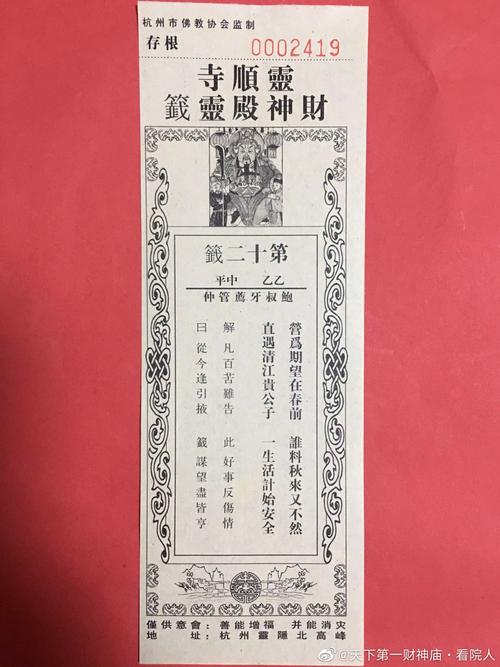 杭州市佛教协会监制
存根 0002419
靈順寺
財神殿靈籤
第十二籤
乙乙 中平
鮑叔牙薦管仲
營爲期望在春前 誰料秋來又不然
直遇清江貴公子 一生活計始安全
解 凡百苦難告 此 好事反傷情
曰 從今逢引掖 籤 謀望盡皆亨
僅供意會：善能增福 并能消灾
地 址：杭州靈隱北高峰
@天下第一财神庙·看院人